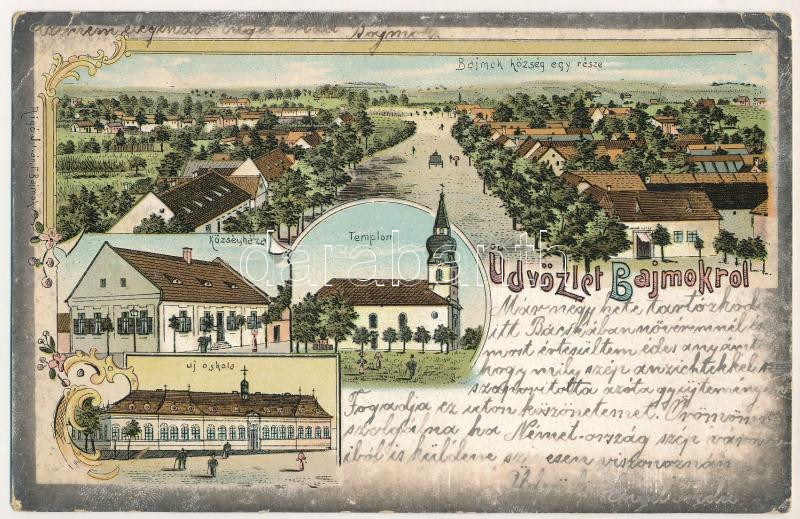 Bajmok község egy része
Községháza
Templom
Üdvözlet Bajmokrol
uj oskola
darabanth
Már négy hete tartózkod
itt Bácskában nővéremnél és
most értesültem édes anyámt
hogy mily szép anzichtekkel
szaporitotta azóta gyüjtemény
Fogadja ez uton köszönetemet. Örömöm
szolgálna ha Német-ország szép váro
iból is küldene esen viszonoznám